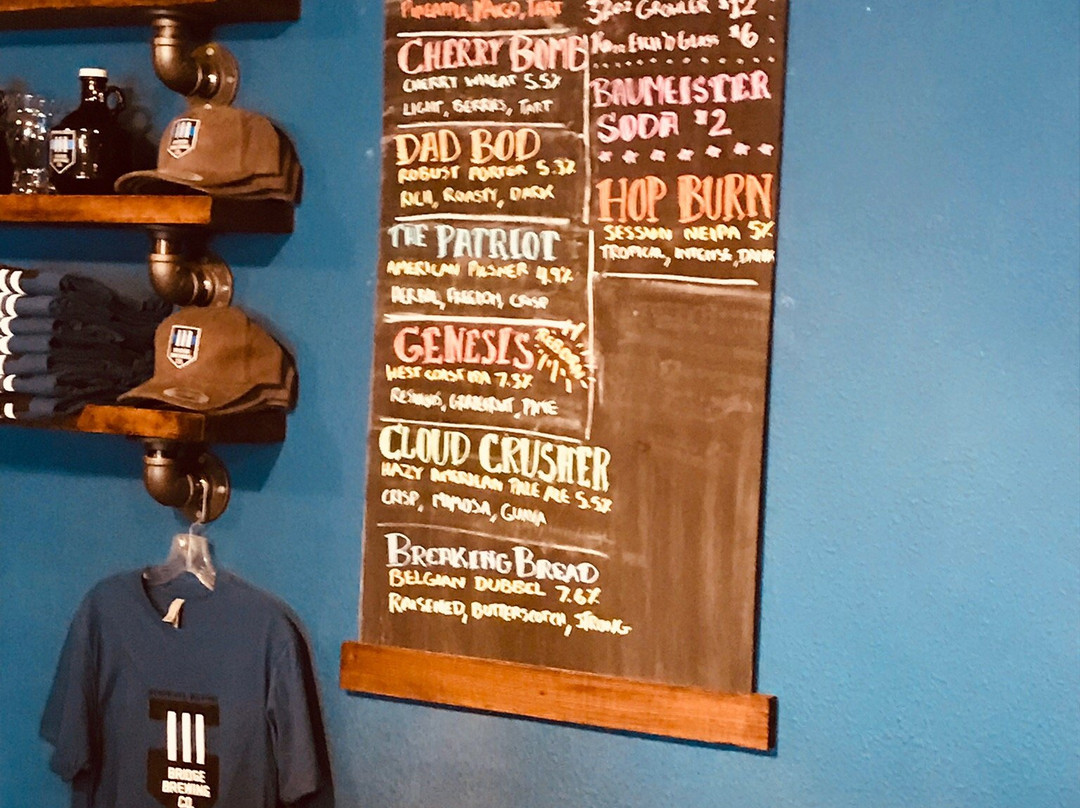 PINEAPPLE, MANGO, TART
CHERRY BOMB
CHERRY WHEAT 5.5%
LIGHT, BERRIES, TART
DAD BOD
ROBUST PORTER 5.3%
RICH, ROASTY, DARK
THE PATRIOT
AMERICAN PILSNER 4.9%
HERBAL, FREEDOM, CRISP
GENESIS
REBORN
WEST COAST IPA 7.5%
RESINOUS, GRAPEFRUIT, PINE
CLOUD CRUSHER
HAZY AMERICAN PALE ALE 5.5%
CRISP, MIMOSA, GUAVA
BREAKING BREAD
BELGIAN DUBBEL 7.6%
RAISENED, BUTTERSCOTCH, STRONG
32oz GROWLER $12
GLASS $6
BAUMEISTER
SODA $2
HOP BURN
SESSION NEIPA 5%
TROPICAL, INTENSE, DANK
BRIDGE
BREWING
CO.